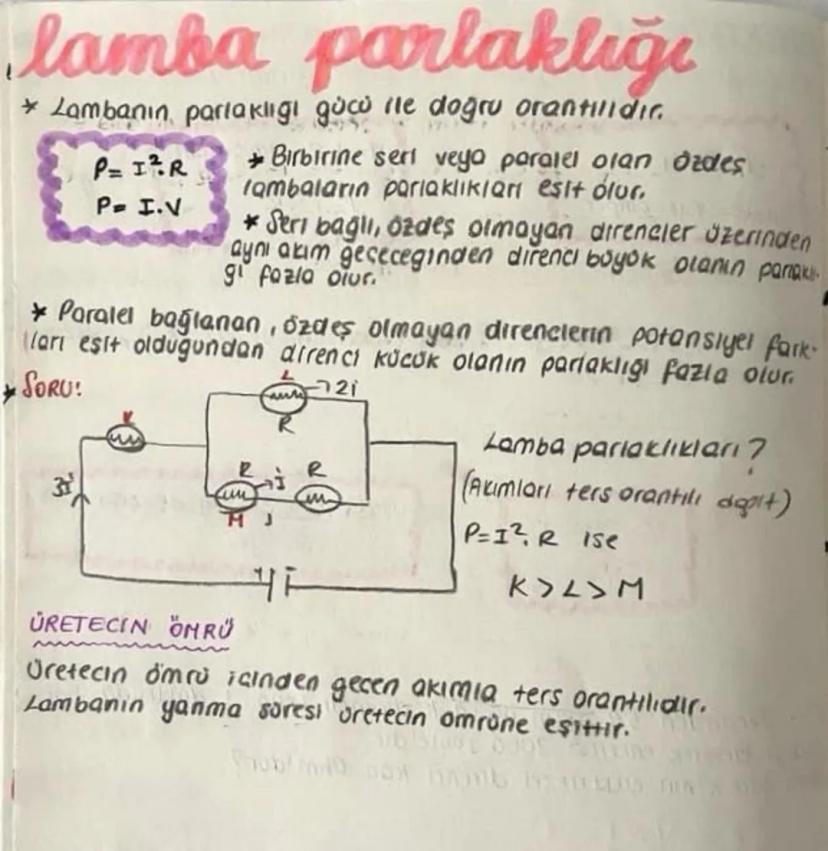 lamba parlaklığı
* Lambanın parlaklığı gücü ile doğru orantılıdır.
P= I².R
P= I.V
* Birbirine seri veya paralel olan özdeş
lambaların parlaklıkları eşit olur.
* Seri bağlı, özdeş olmayan dirençler üzerinden
aynı akım geçeceğinden direnci büyük olanın parlaklı-
ğı fazla olur.
* Paralel bağlanan, özdeş olmayan dirençlerin potansiyel fark-
ları eşit olduğundan direnci küçük olanın parlaklığı fazla olur.
* SORU:
L
2i
R
K
R
i
R
M
3i
Lamba parlaklıkları?
(Akımları ters orantılı dağıt)
P=I².R ise
K>L>M
ÜRETECİN ÖMRÜ
Üretecin ömrü içinden geçen akımla ters orantılıdır.
Lambanın yanma süresi üretecin ömrüne eşittir.